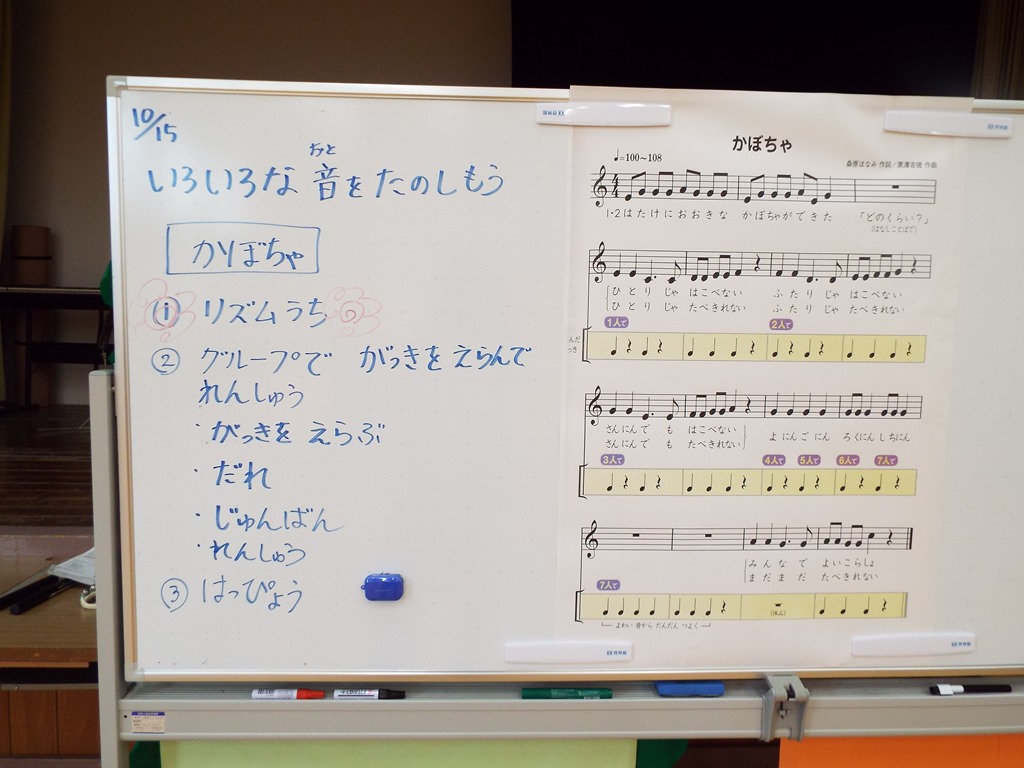 10/15
おと
いろいろな 音をたのしもう
かぼちゃ
① リズムうち
② グループで がっきを えらんで
れんしゅう
・がっきを えらぶ
・だれ
・じゅんばん
・れんしゅう
③ はっぴょう
かぼちゃ
♩=100~108
桑原はなみ 作詞/黒澤吉徳 作曲
1・2 はたけにおおきな かぼちゃができた 「どのくらい?」
(はなしことばで)
ひとりじゃ はこべない ふたりじゃ はこべない
ひとりじゃ たべきれない ふたりじゃ たべきれない
1人で 2人で
さんにんでも はこべない よにんごにん ろくにんしちにん
さんにんでも たべきれない
3人で 4人で 5人で 6人で 7人で
みんなで よいこらしょ
まだまだ たべきれない
7人で
(休み)
よわい音から だんだん つよく